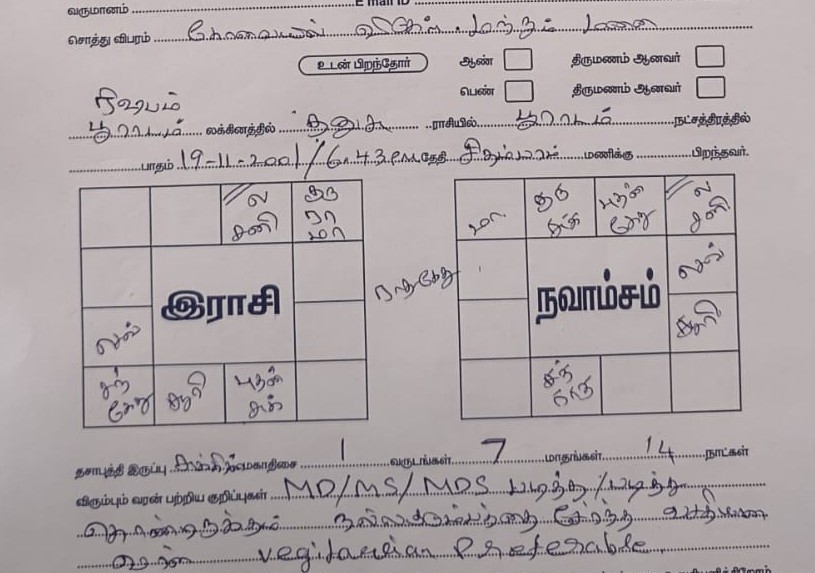 வருமானம் E mail ID
சொத்து விபரம் கோவையில் வீடு, மற்றும் மனை
உடன் பிறந்தோர் ஆண் திருமணம் ஆனவர்
பெண் திருமணம் ஆனவர்
ரிஷபம்
பூராடம் லக்கினத்தில் தனுசு ராசியில் பூராடம் நட்சத்திரத்தில்
பாதம் 19-11-2001/6.43 P.M தேதி சிதம்பரம் மணிக்கு பிறந்தவர்.
ல குரு ல
சனி ரா குரு புதன் சனி
மா மா சுக் கேது
செவ்
இராசி ராகுகேது நவாம்சம்
செவ் சூரி
சந் சூரி புதன் சந்
கேது சுக் ராகு
தசாபுத்தி இருப்பு சுக்கிர மகாதிசை 1 வருடங்கள் 7 மாதங்கள் 14 நாட்கள்
விரும்பும் வரன் பற்றிய குறிப்புகள் MD/MS/MDS படித்த/படித்து
கொண்டிருக்கும் நல்ல குடும்பத்தை சேர்ந்த
vegitarian Preferable